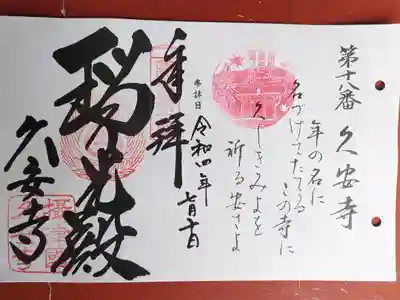 第十八番 久安寺
年の名に
名づけてたてる
この寺に
久しきみよを
祈る安さよ
参拝日
令和四年
七月十日
奉拝
瑞光殿
久安寺